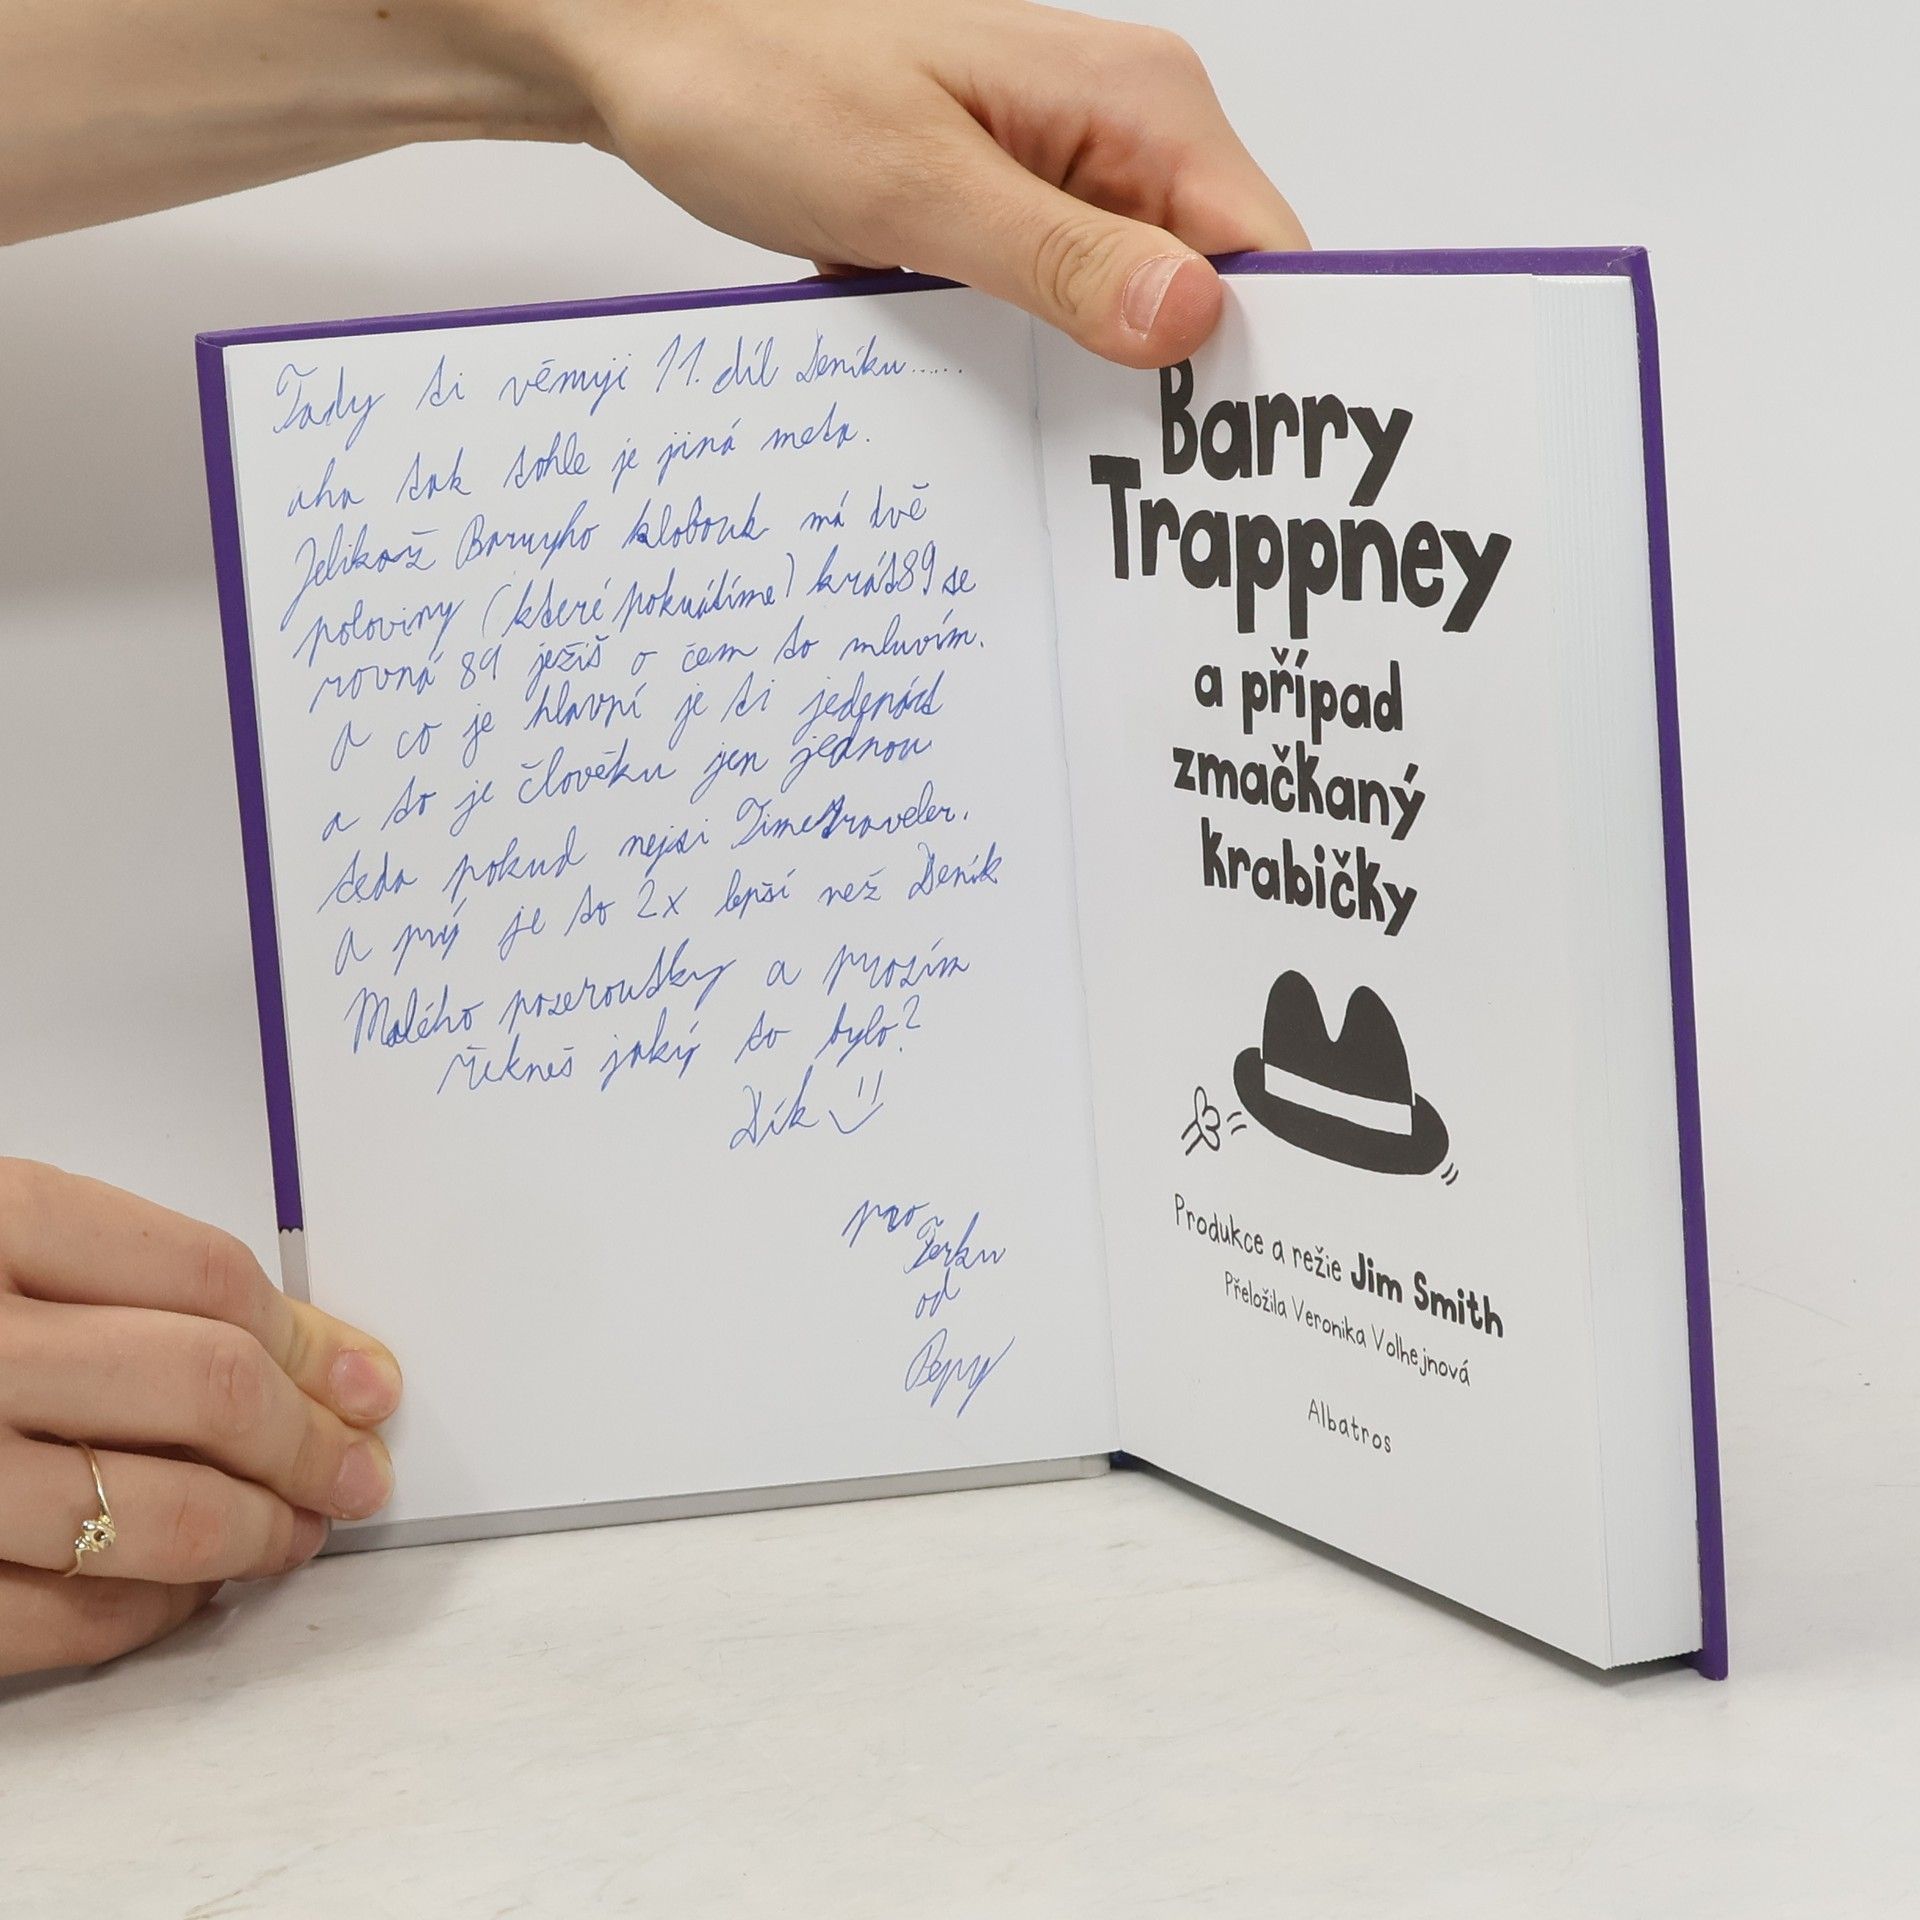 Tady ti věnuji 11. díl Deníku......
aha tak tohle je jiná meta.
Jelikož Barryho klobouk má dvě
poloviny (které pokrátíme) krát 89 se
rovná 89 ježiš o čem to mluvím.
A co je hlavní je ti jedenáct
a to je člověku jen jednou
teda pokud nejsi Timetraveler.
A prý je to 2x lepší než Deník
Malého poseroutky a prosím
řekneš jaký to bylo?
Dík
pro
Terku
od
Pepy
Barry
Trappney
a případ
zmačkaný
krabičky
Produkce a režie Jim Smith
Přeložila Veronika Volhejnová
Albatros